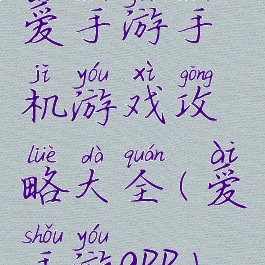 爱手游手
jī yóu xì gōng
机游戏攻
lüè dà quán ài
略大全(爱
shǒu yóu
手游APP)